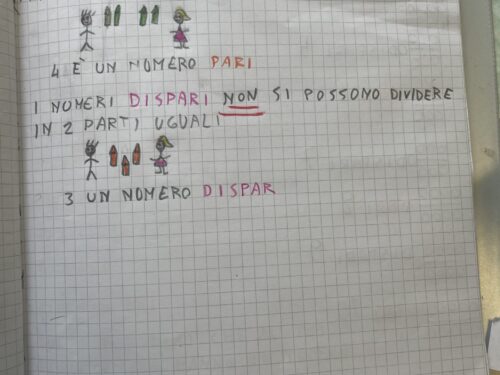 4 È UN NUMERO PARI
I NUMERI DISPARI NON SI POSSONO DIVIDERE
IN 2 PARTI UGUALI
3 UN NUMERO DISPAR